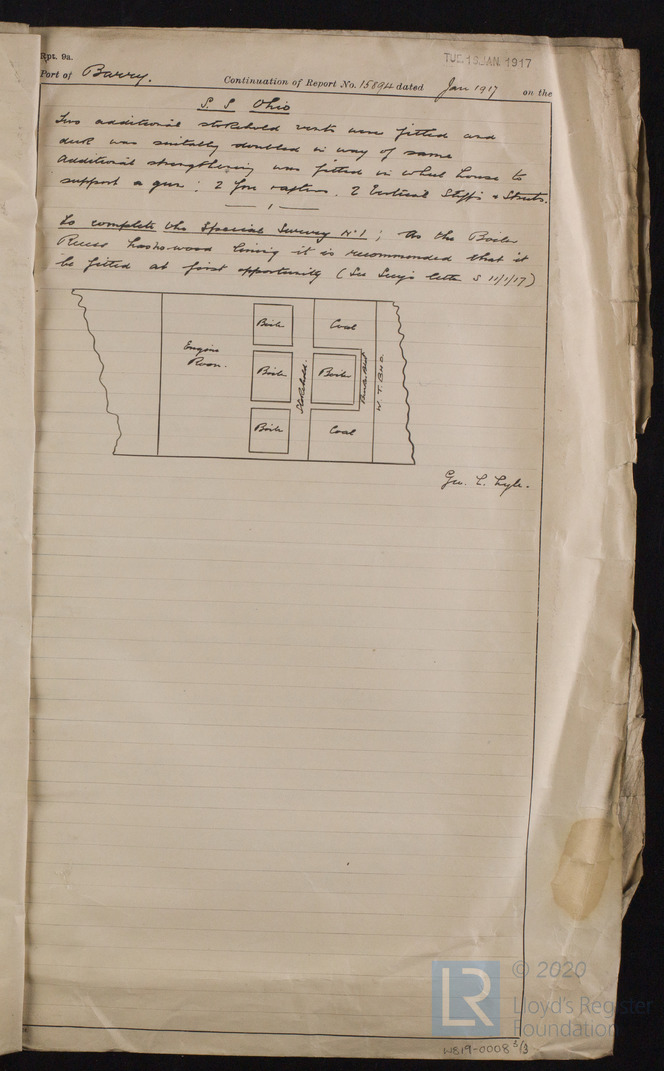 Rpt. 9a.
TUE. 16 JAN. 1917
Port of Barry.
Continuation of Report No. 15894 dated Jan 1917 on the
S. S Ohio
Two additional stokehold vents were fitted and
deck was suitably doubled in way of same
Additional strengthening was fitted in wheel house to
support a gun: 2 fore rafters. 2 Vertical Stiff's & Struts.
To complete the Special Survey No 1; As the Boiler
Recess has no wood lining it is recommended that it
be fitted at first opportunity (See Secy's letter S 11/1/17)
Engine
Room.
Boiler
Boiler
Boiler
Stokehold.
Coal
Boiler
Coal
W. T. BHD.
Geo. C. Lyle.
LR
© 2020
Lloyd's Register
Foundation
W819-0008 3/3